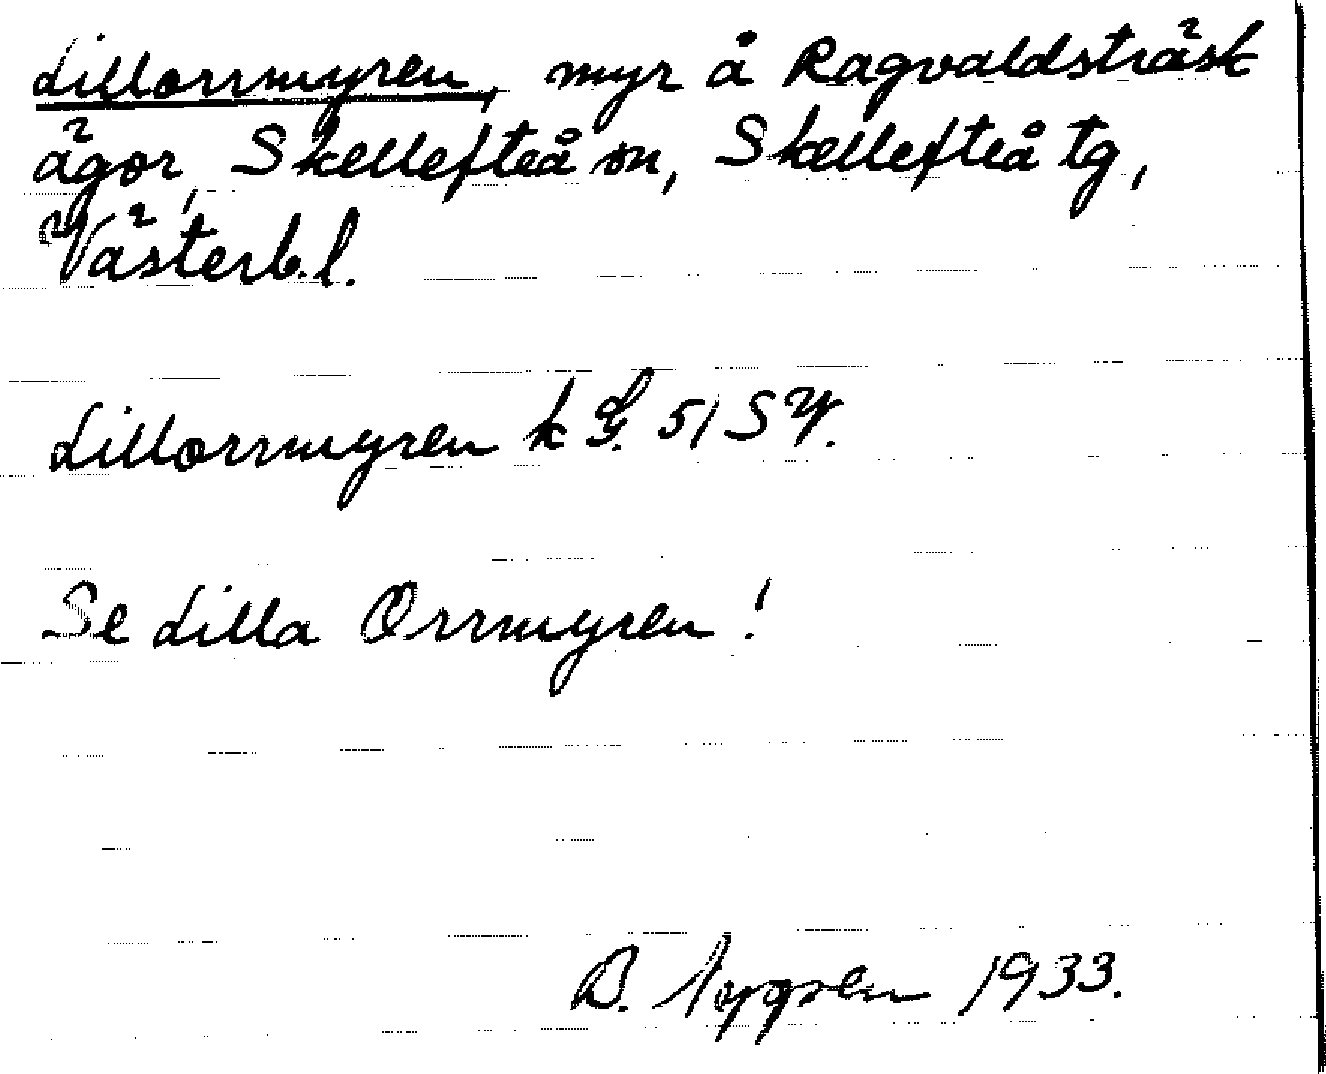 Lillorrmyren, myr å Ragvaldsträsk
ägor, Skellefteå sn, Skellefteå tg,
Västerb.l.
Lillorrmyren k G. 51 S
Se Lilla Orrmyren!
B. 1933.